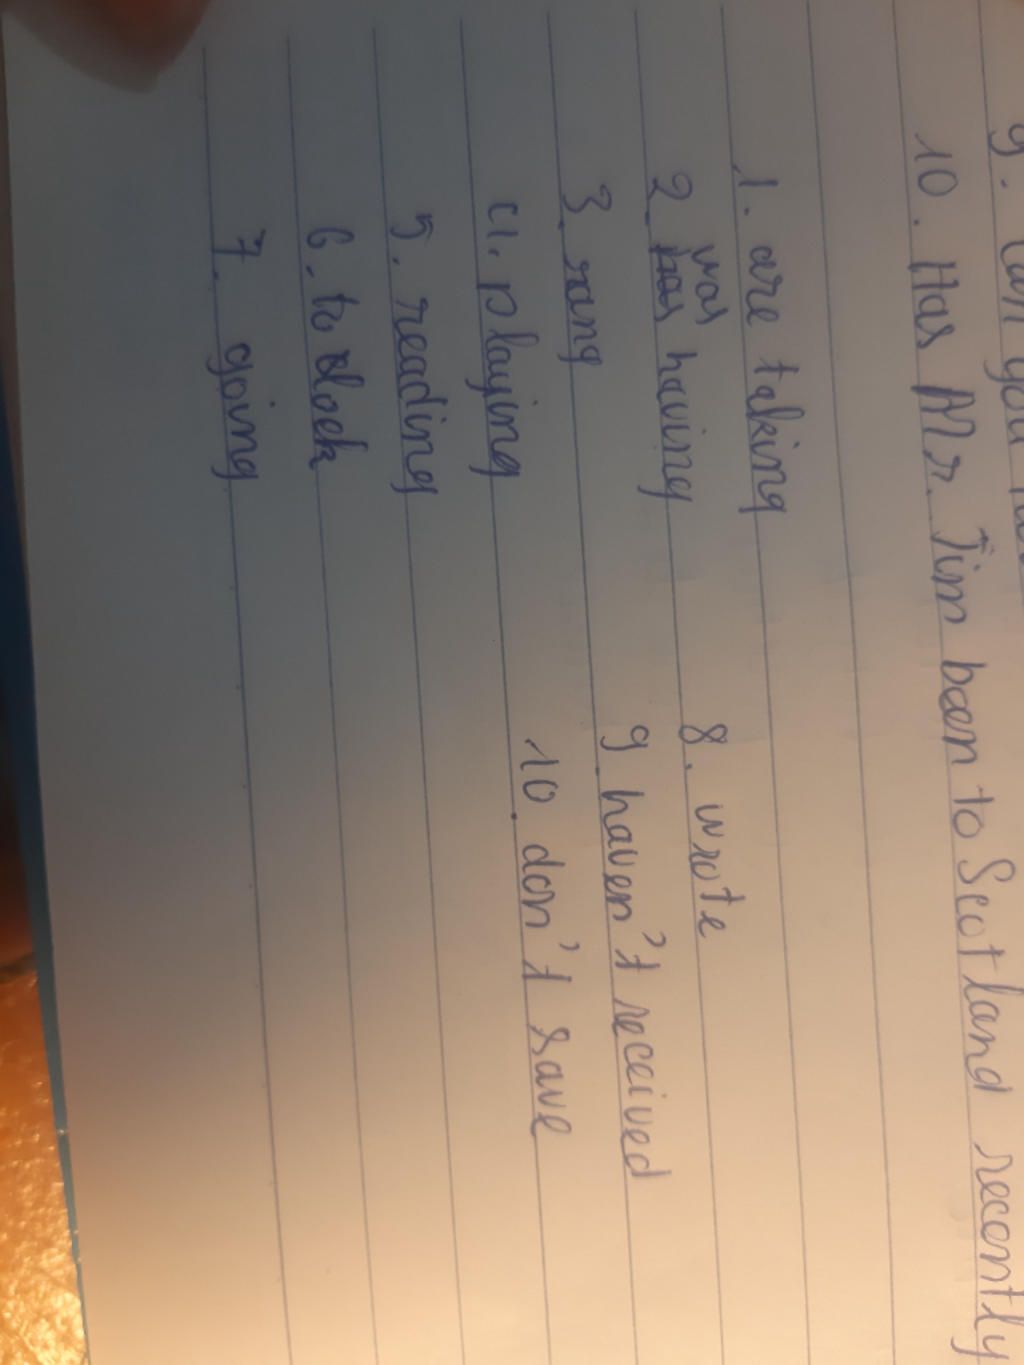 9. Can you
10. Has Mr. Jim been to Scotland recently
1. are taking
was
2. has having
3. rang
4. playing
5. reading
6. to look
7. going
8. wrote
9. haven't received
10. don't save